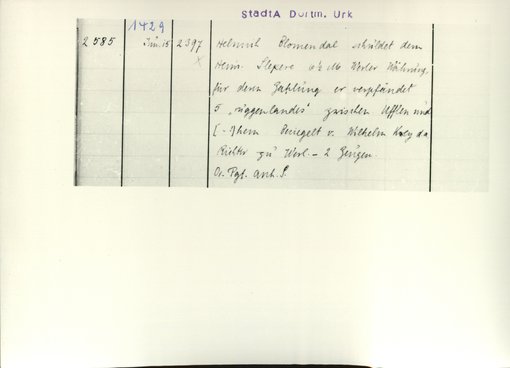 StadtA Dortm. Urk
1429
2585 Juni 15 2397 Helmich Blomendal schuldet dem
x Herm. Slepere Mk Werler Währung,
für deren Zahlung er verpfändet
5 „ruggenlandes" zwischen Ufflen und
[-]hem Besiegelt v. Wilhelm
Richter zu Werl. - 2 Zeugen.
Or. Pgt. anh. S.